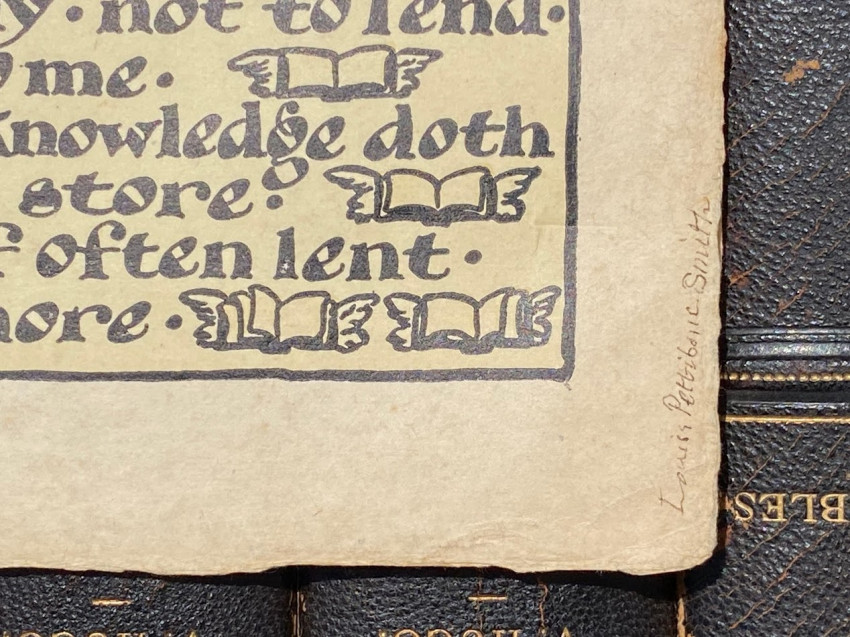 y. not to lend.
me.
Knowledge doth
store?
f often lent.
more.
Louise Pettibone Smith
BLES
V. HUGO
V. HUGO